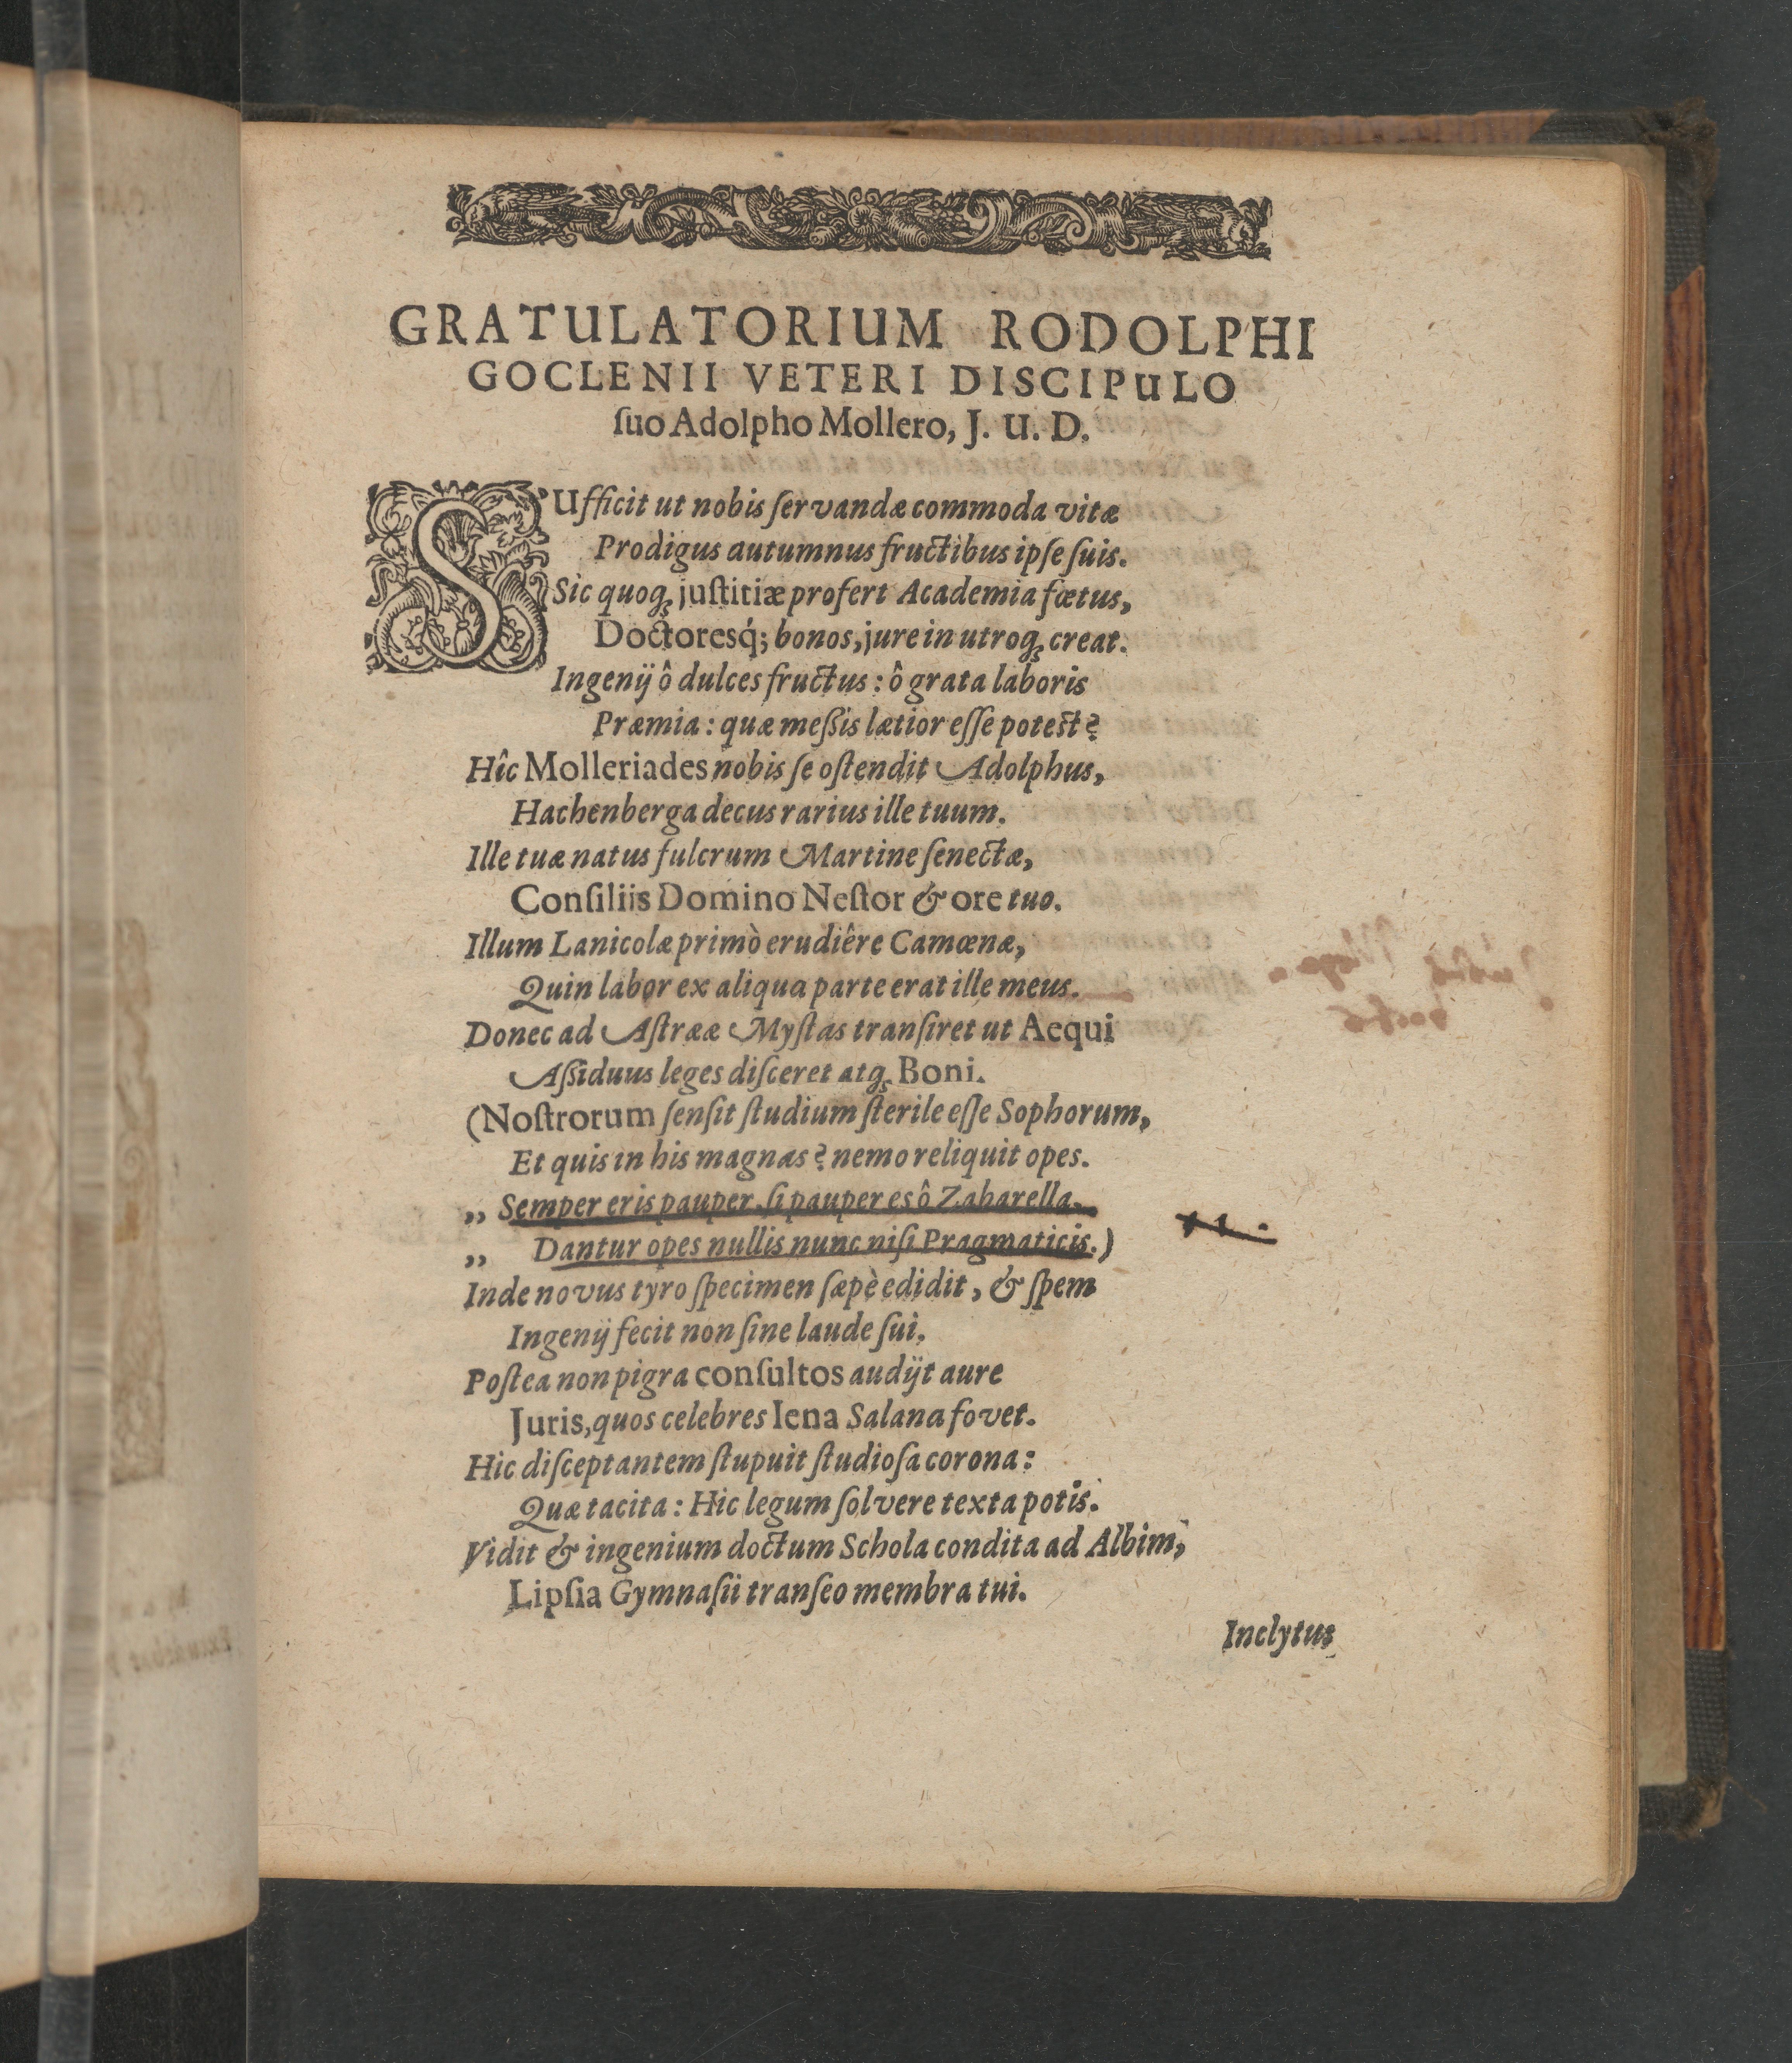 GRATULATORIUM RODOLPHI
GOCLENII VETERI DISCIPULO
ſuo Adolpho Mollero, J. U. D.
SUfficit ut nobis ſervandæ commoda vitæ
Prodigus autumnus fructibus ipſe ſuis.
Sic quoq; juſtitiæ profert Academia fœtus,
Doctoresq́; bonos, jure in utroq; creat.
Ingenij ô dulces fructus : ô grata laboris
Præmia : quæ meßis lætior eſſe poteſt?
Hîc Molleriades nobis ſe oſtendit Adolphus,
Hachenberga decus rarius ille tuum.
Ille tuæ natus fulcrum Martine ſenectæ,
Conſiliis Domino Neſtor & ore tuo.
Illum Lanicolæ primò erudiêre Camœnæ,
Quin labor ex aliqua parte erat ille meus.
Donec ad Aſtrææ Myſtas tranſiret ut Aequi
Aßiduus leges diſceret atq; Boni.
(Noſtrorum ſenſit ſtudium ſterile eſſe Sophorum,
Et quis in his magnas? nemo reliquit opes.
„ Semper eris pauper, ſi pauper es ô Zabarella,
„ Dantur opes nullis nunc niſi Pragmaticis.)
Inde novus tyro ſpecimen ſæpè edidit, & ſpem
Ingenij fecit non ſine laude ſui.
Poſtea non pigra conſultos audijt aure
Juris, quos celebres Iena Salana fovet.
Hic diſceptantem ſtupuit ſtudioſa corona :
Quæ tacita : Hic legum ſolvere texta potis.
Vidit & ingenium doctum Schola condita ad Albim,
Lipſia Gymnaſii tranſeo membra tui.
Inclytus